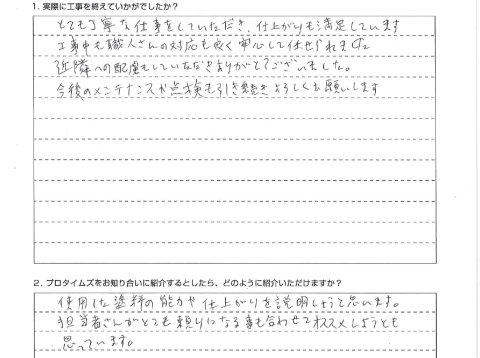 1. 実際に工事を終えていかがでしたか？
とても丁寧な仕事をしていただき、仕上がりも満足しています
工事中も職人さんの対応も良く安心して任せられました
近隣への配慮もしていただきありがとうございました。
今後のメンテナンスや点検も引き続きよろしくお願いします
2. プロタイムズをお知り合いに紹介するとしたら、どのように紹介いただけますか？
使用した塗料の能力や仕上がりを説明しようと思います。
担当者さんがとても頼りになる事も合わせてオススメしようとも
思っています。